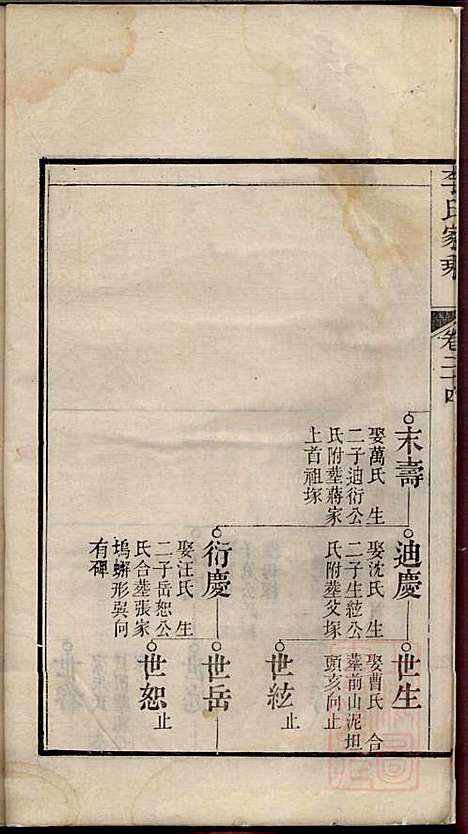 李氏家乘
卷二十四
末壽
娶萬氏 生
二子迪衍公
氏附塟蔣家
上首祖塚
迪慶
娶沈氏 生
二子生紘公
氏附塟父塚
衍慶
娶汪氏 生
二子岳恕公
氏合塟張家
塢蠏形巽向
有碑
世生
娶曹氏 合
塟前山泥坦
頭亥向止
世紘 止
世岳
世恕 止